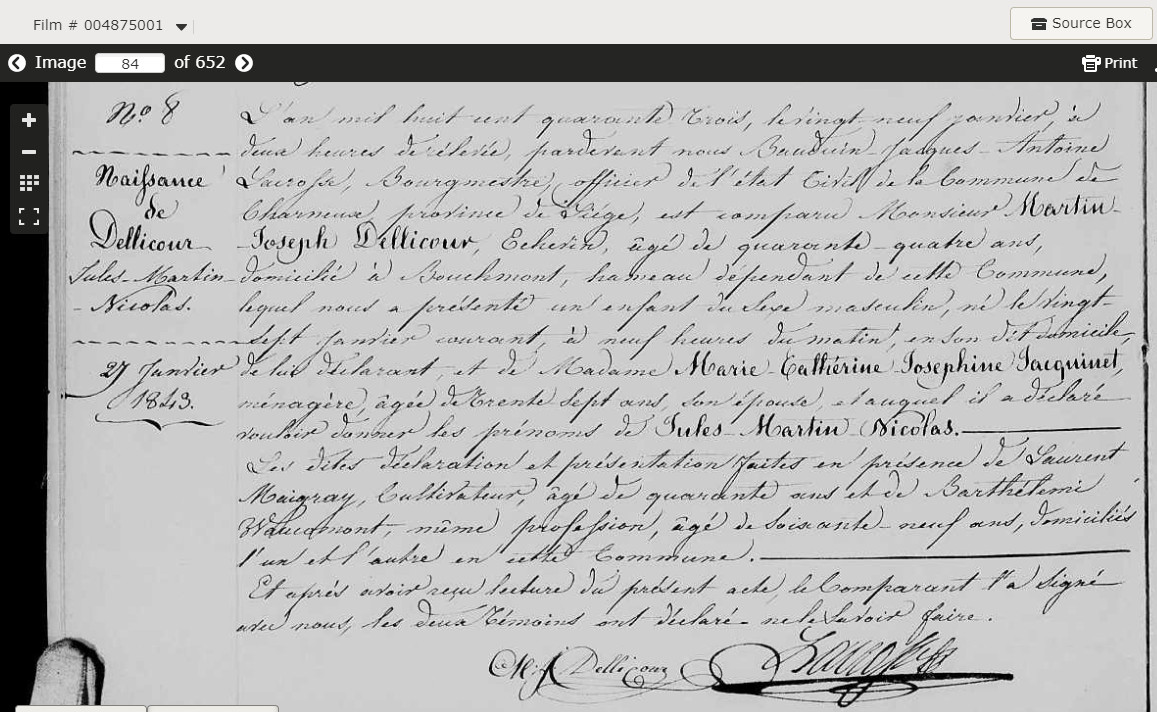 Film # 004875001
Source Box
Image 84 of 652
Print
No. 8
Naissance
de
Dellicour
Jules-Martin-
-Nicolas.
27 Janvier
1843.
L'an mil huit cent quarante Trois, le vingt neuf janvier, à
deux heures de rélevée, pardevant nous Bauduin-Jacques-Antoine
Lacrosse, Bourgmestre, officier de l'état Civil de la Commune de
Charneux, province de Liége, est comparu Monsieur Martin-
-Joseph Dellicour, Echevin, âgé de quarante-quatre ans,
domicilié à Bouchmont, hameau dépendant de cette Commune,
lequel nous a présenté un enfant du Sexe masculin, né le vingt-
-sept janvier courant, à neuf heures du matin, en son dit domicile,
de lui déclarant, et de Madame Marie-Cathérine-Josephine Jacquinet,
ménagère, âgée de Trente sept ans, son épouse, et auquel il a déclaré
vouloir donner les prénoms de Jules-Martin-Nicolas.
Les dites déclaration et présentation faites en présence de Laurent
Maigray, Cultivateur, âgé de quarante ans et de Barthélemi
Waucomont, même profession, âgé de soixante-neuf ans, domiciliés
l'un et l'autre en cette Commune.
Et après avoir reçu lecture du présent acte, le Comparant l'a signé
avec nous, les deux Témoins ont déclaré ne le savoir faire.
M. J. Dellicour Lacrosse